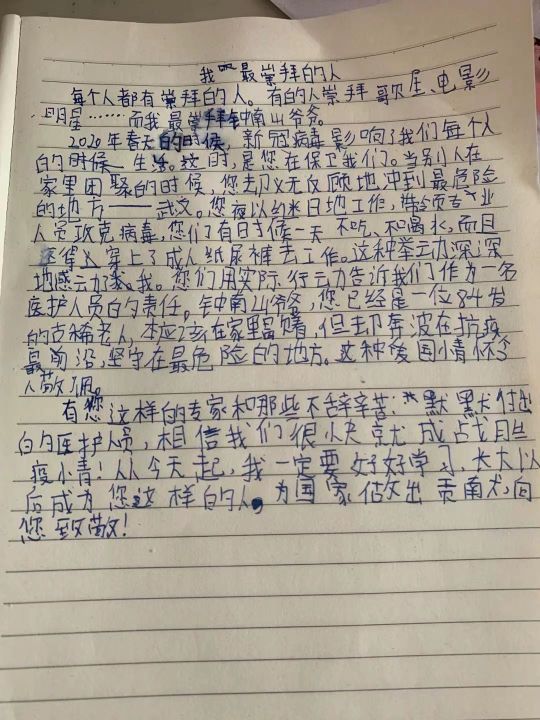 我最崇拜的人
每个人都有崇拜的人。有的人崇拜歌星、电影
明星……而我最崇拜钟南山爷爷。
2020年春天的时候,新冠病毒影响了我们每个人
的时候生活。这时,是您在保卫我们。当别人在
家里团聚的时候,您却义无反顾地冲到最危险
的地方——武汉。您夜以约米日地工作,带领专业
人员攻克病毒,您们有日时候一天不吃、和喝水,而且
还得穿上了成人纸尿裤去工作。这种举动深深
地感动了我。您们用实际行动告诉我们作为一名
医护人员的责任。钟南山爷爷,您已经是一位84岁
的古稀老人,本应该在家里着,但却奔波在抗疫
最前沿,坚守在最危险的地方。这种爱国情怀令
人敬佩。
有您这样的专家和那些不辞辛苦、默默付出
的医护人员,相信我们很快就成战胜
疫情!从今天起,我一定要好好学习,长大以
后成为您这样的人,为国家做出贡献,向
您致敬!